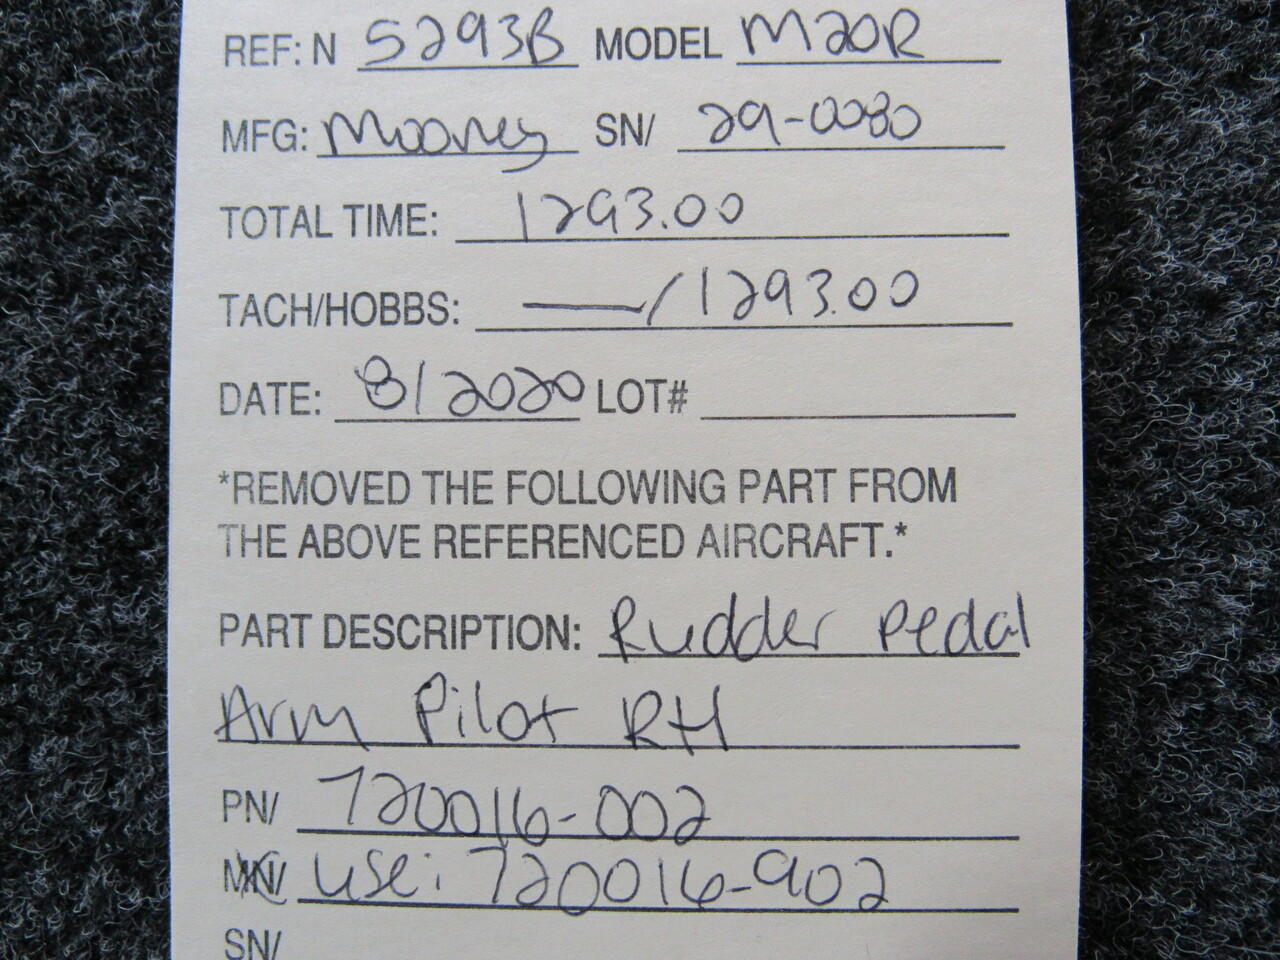 REF: N 5293B MODEL M20R
MFG: Mooney SN/ 29-0080
TOTAL TIME: 1293.00
TACH/HOBBS: —/1293.00
DATE: 8/2020 LOT#
*REMOVED THE FOLLOWING PART FROM
THE ABOVE REFERENCED AIRCRAFT.*
PART DESCRIPTION: Rudder Pedal
Arm Pilot RH
PN/ 720016-002
MN/ use: 720016-902
SN/